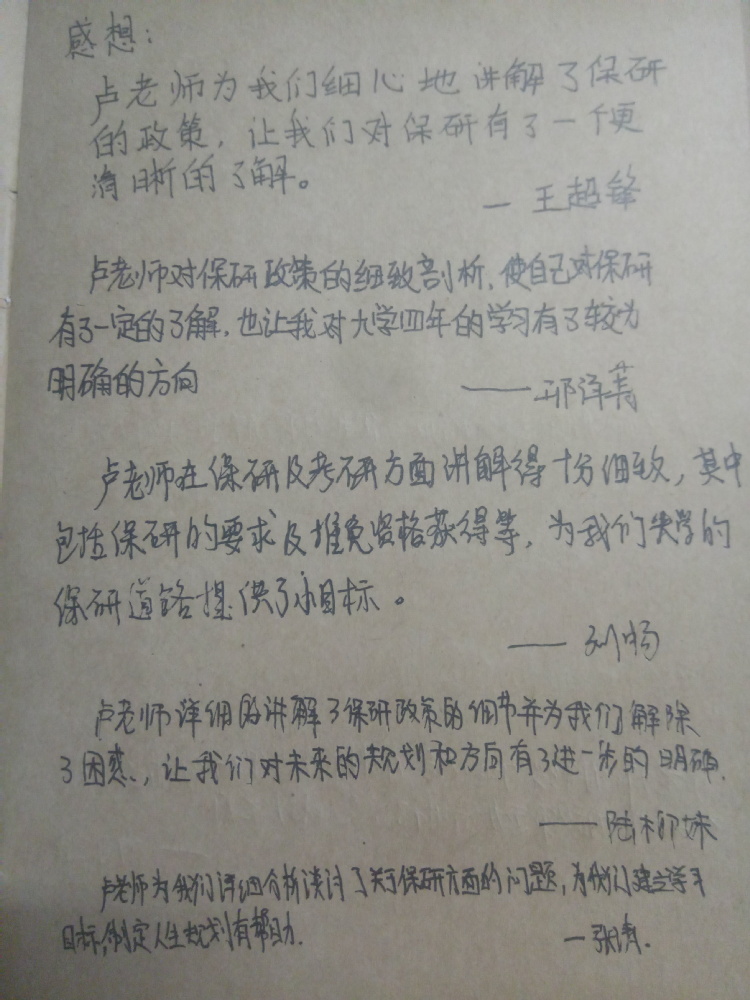 感想:
卢老师为我们细心地讲解了保研
的政策，让我们对保研有了一个更
清晰的了解。
— 王超锋
卢老师对保研政策的细致剖析，使自己对保研
有了一定的了解，也让我对大学四年的学习有了较为
明确的方向
——邢泽菁
卢老师在保研及考研方面讲解得十分细致，其中
包括保研的要求及推免资格获得等，为我们失学的
保研道路提供了小目标。
—— 刘畅
卢老师详细的讲解了保研政策的细节并为我们解除
了困惑，让我们对未来的规划和方向有了进一步的明确.
——陆柳妹
卢老师为我们详细分析谈讨了关于保研方面的问题，为我们建立学习
目标,制定人生规划有帮助.
—张倩.